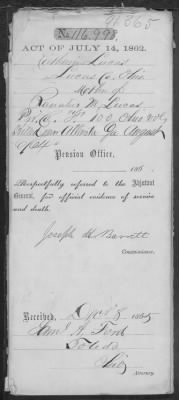 96865
No. 116,998
ACT OF JULY 14, 1862.
Catharine Lucas
Lucas Co. Ohio
Mother of
M. Lucas
100 Ohio Vols
Atlanta Ga August
Pension Office,
186
Respectfully referred to the Adjutant
General, for official evidence of service
and death.
Joseph H Barrett
Commissioner.
Received, Dec 5 1865
A. Ford
Toledo
Ohio
Attorney